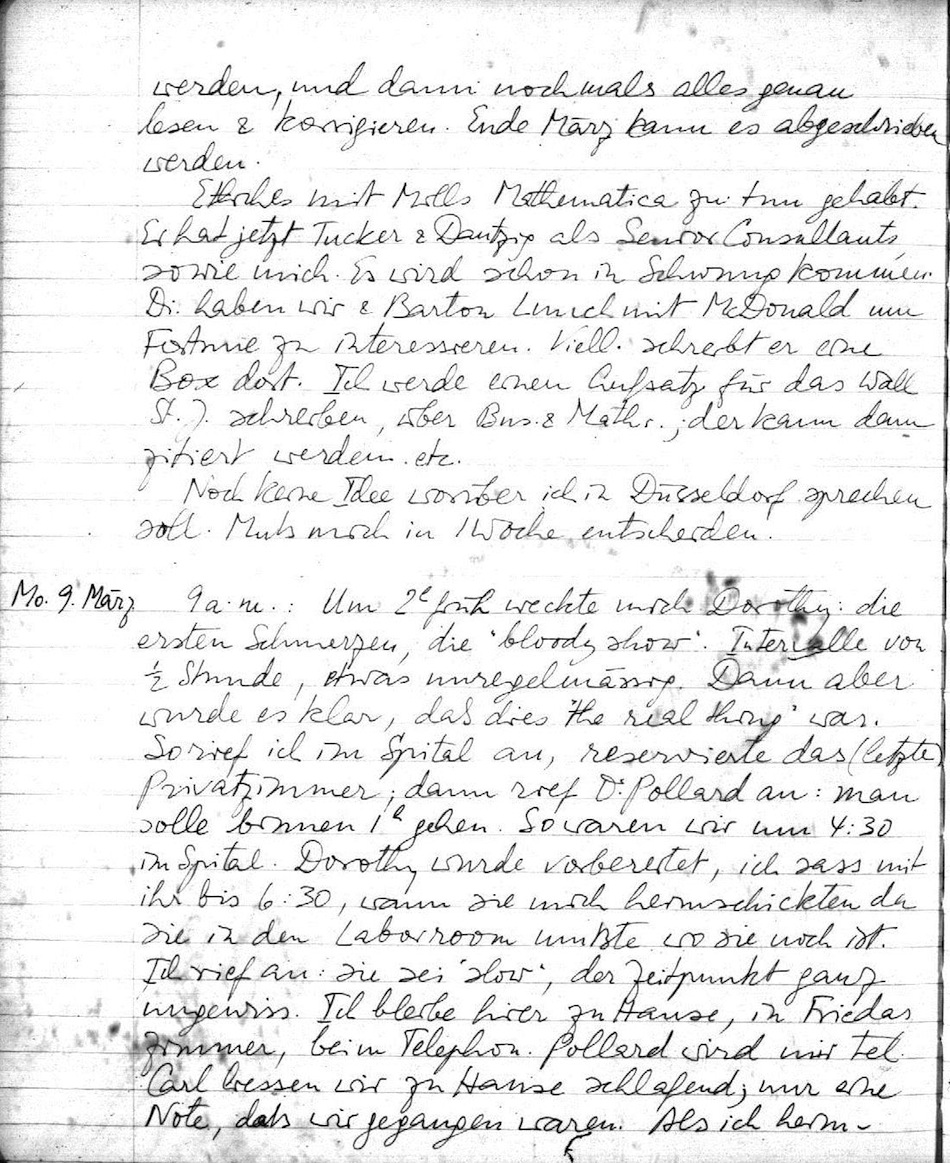 werden, und dann nochmals alles genau
lesen & korrigieren. Ende März kann es abgeschrieben
werden.
Etliches mit Mills Mathematica zu tun gehabt.
Er hat jetzt Tucker & Dantzig als Senior Consultants
sowie mich. Es wird schon in Schwung kommen.
Di. haben wir & Barton Lunch mit McDonald um
Fortune zu interessieren. Viell. schreibt er eine
Box dort. Ich werde einen Aufsatz für das Wall
St. J. schreiben, über Bus. & Math.; der kann dann
zitiert werden etc.
Noch keine Idee worüber ich in Düsseldorf sprechen
soll. Muß mich in 1 Woche entscheiden.
Mo. 9. März 9 a.m.: Um 2h früh weckte mich Dorothy: die
ersten Schmerzen, die 'bloody show'. Intervalle von
½ Stunde, etwas unregelmässig. Dann aber
wurde es klar, daß dies 'the real thing' war.
So rief ich im Spital an, reservierte das (letzte)
Privatzimmer; dann rief Dr. Pollard an: man
solle binnen 1h gehen. So waren wir um 4:30
im Spital. Dorothy wurde vorbereitet, ich sass mit
ihr bis 6:30, wann sie mich heimschickten da
sie in den Laborroom mußte wo sie noch ist.
Ich rief an: sie sei 'slow', der Zeitpunkt ganz
ungewiss. Ich bleibe hier zu Hause, in Friedas
Zimmer, beim Telephon. Pollard wird mir tel.
Carl liessen wir zu Hause schlafend; nur eine
Note, daß wir gegangen waren. Als ich heim-